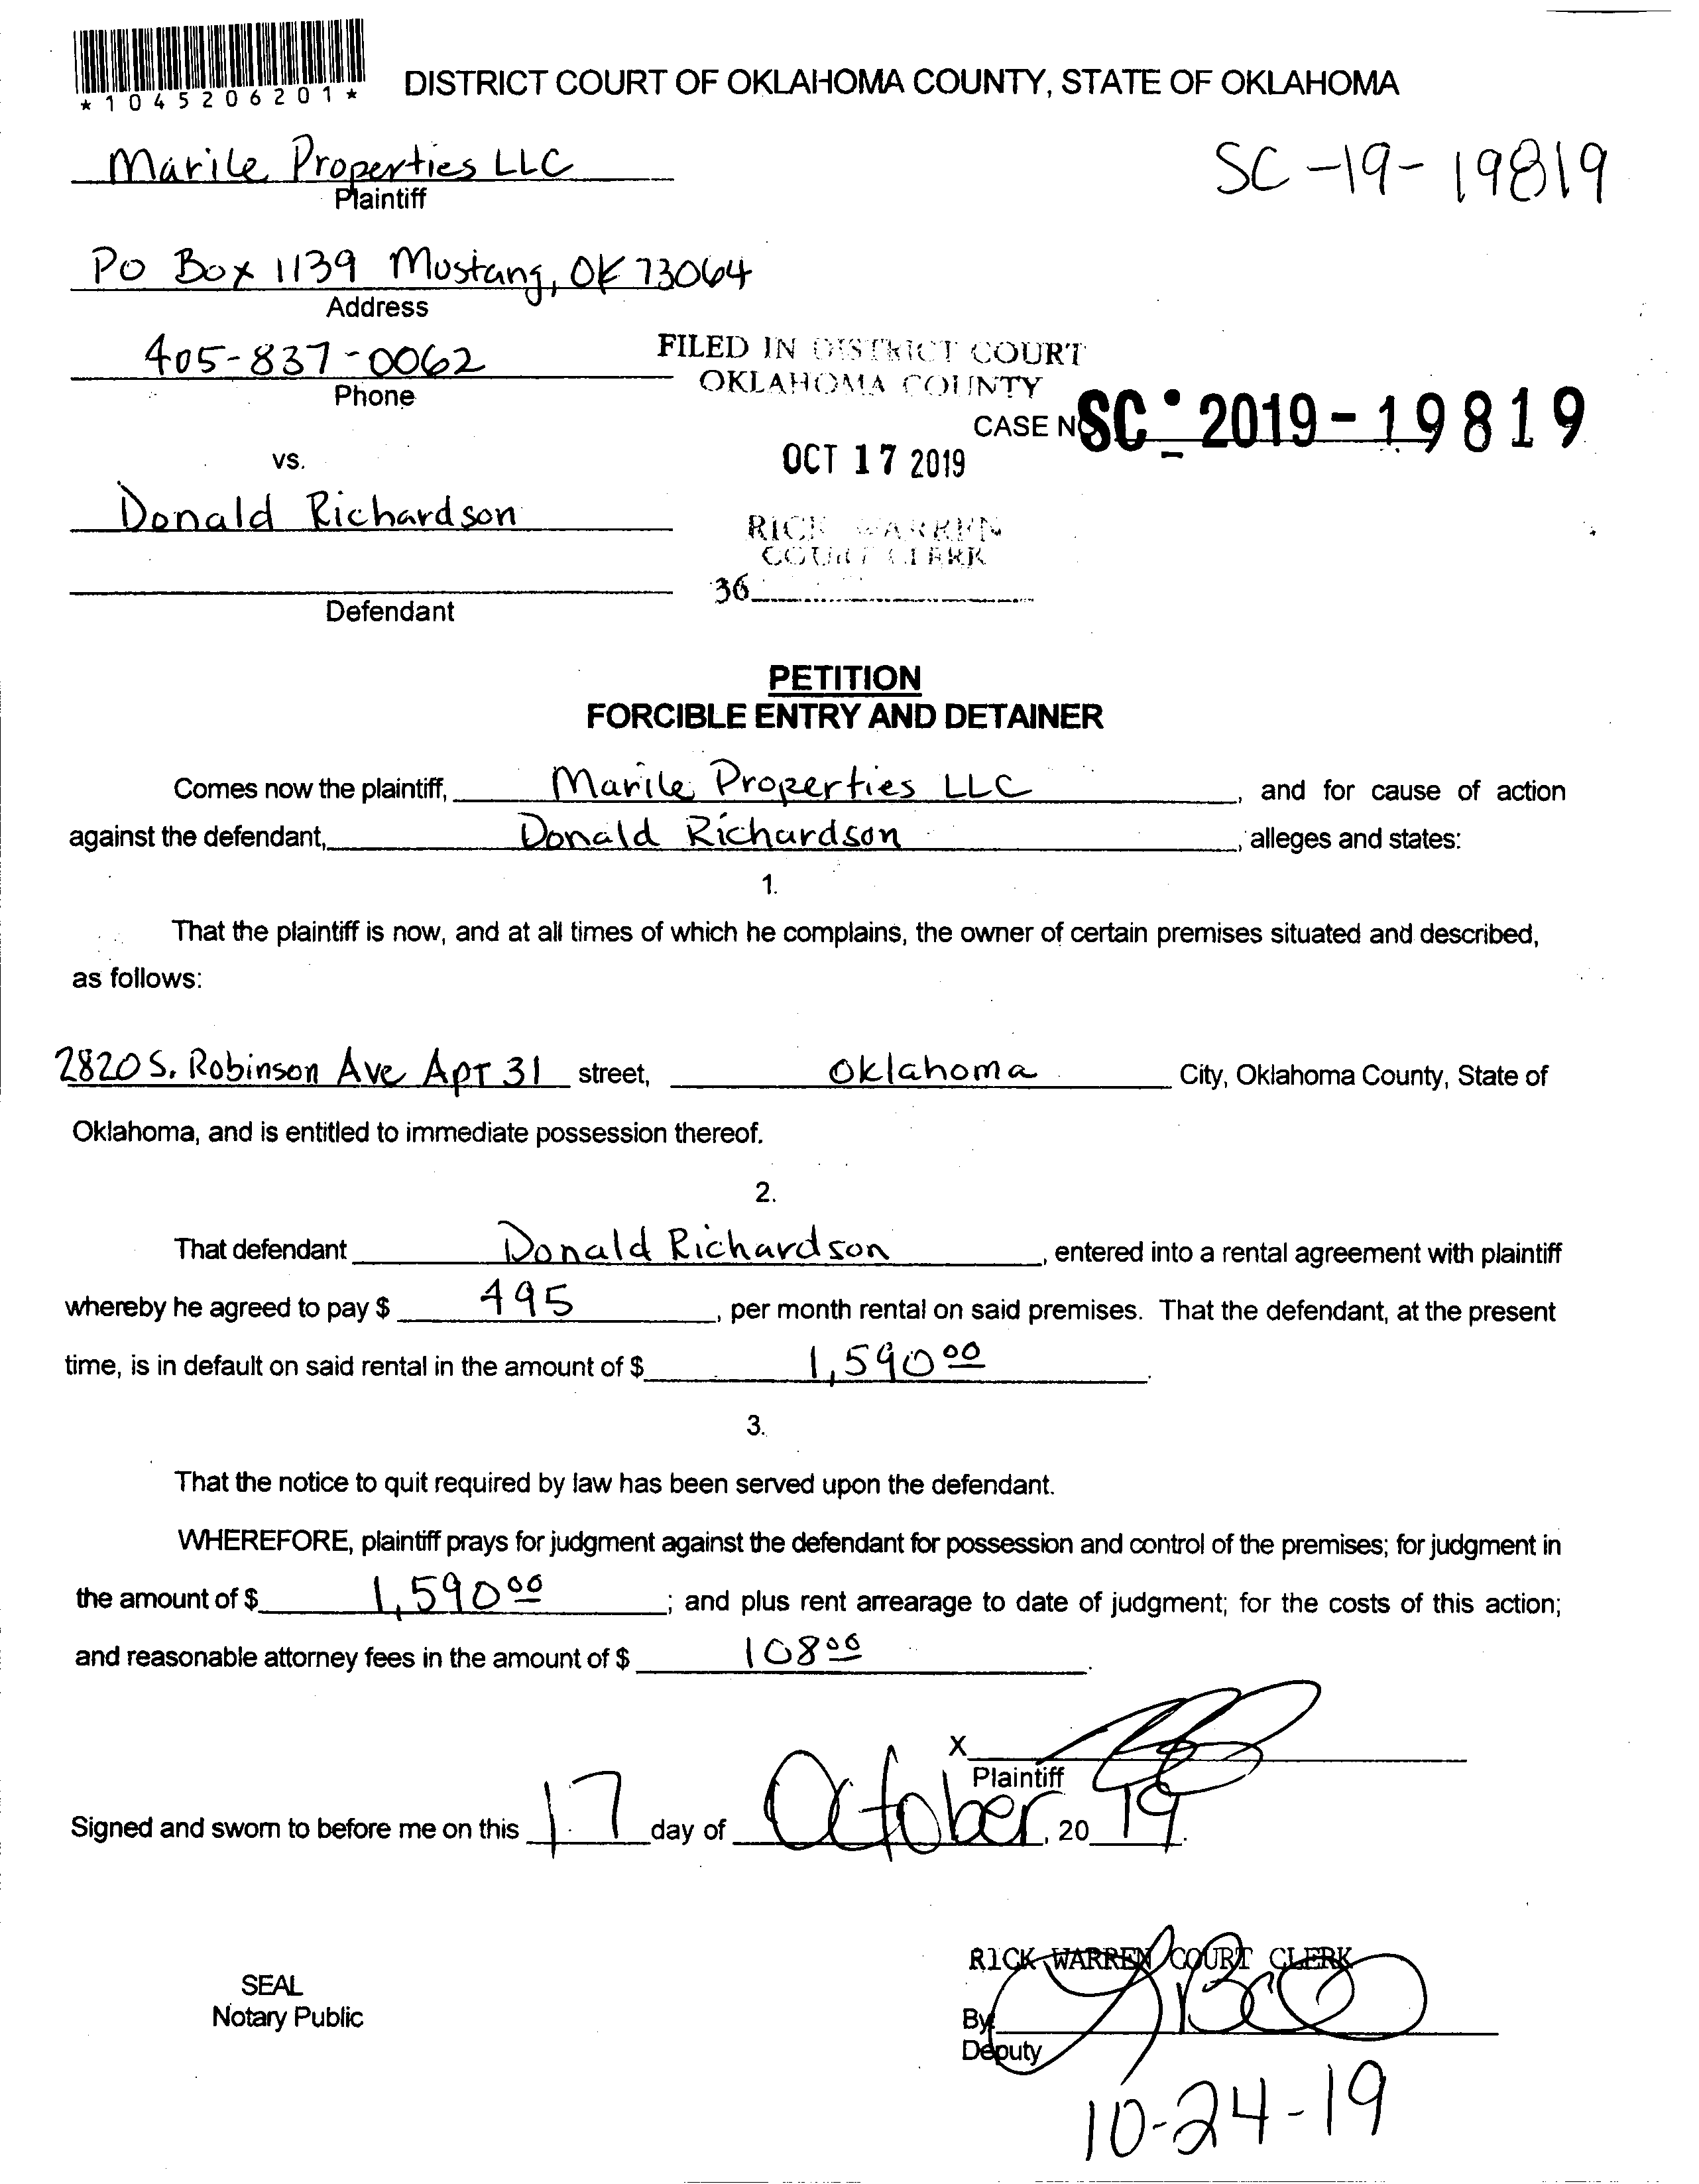 *1045206201*
DISTRICT COURT OF OKLAHOMA COUNTY, STATE OF OKLAHOMA
Marile Properties LLC
Plaintiff
SC-19-19819
PO Box 1139 Mustang, OK 73064
Address
405-837-0062
Phone
FILED IN DISTRICT COURT
OKLAHOMA COUNTY
CASE NO SC-2019-19819
OCT 17 2019
vs.
Donald Richardson
RICK WARREN
COURT CLERK
36
Defendant
PETITION
FORCIBLE ENTRY AND DETAINER
Comes now the plaintiff, Marile Properties LLC, and for cause of action
against the defendant, Donald Richardson, alleges and states:
1.
That the plaintiff is now, and at all times of which he complains, the owner of certain premises situated and described,
as follows:
2820 S. Robinson Ave Apt 31 street, Oklahoma City, Oklahoma County, State of
Oklahoma, and is entitled to immediate possession thereof.
2.
That defendant Donald Richardson, entered into a rental agreement with plaintiff
whereby he agreed to pay $ 495, per month rental on said premises. That the defendant, at the present
time, is in default on said rental in the amount of $ 1,590 00.
3.
That the notice to quit required by law has been served upon the defendant.
WHEREFORE, plaintiff prays for judgment against the defendant for possession and control of the premises; for judgment in
the amount of $ 1,590 00; and plus rent arrearage to date of judgment; for the costs of this action;
and reasonable attorney fees in the amount of $ 108 00.
X
Plaintiff
Signed and sworn to before me on this 17 day of October, 20 19.
RICK WARREN COURT CLERK
SEAL
Notary Public
By
Deputy
10-24-19